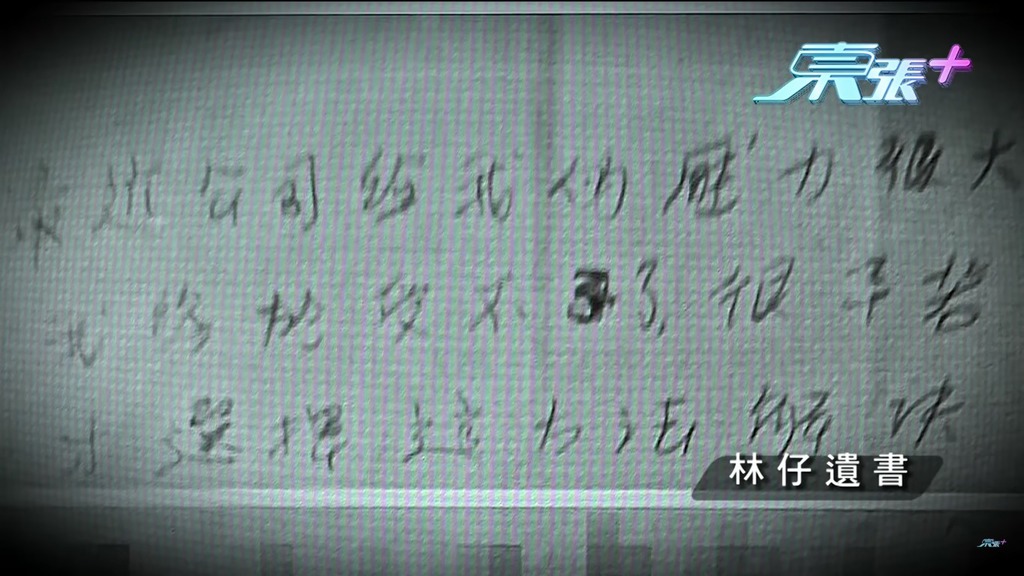 東張+
公司給我們壓力很大
受不了,很辛苦
才選擇這方法解決
林仔遺書
東張+